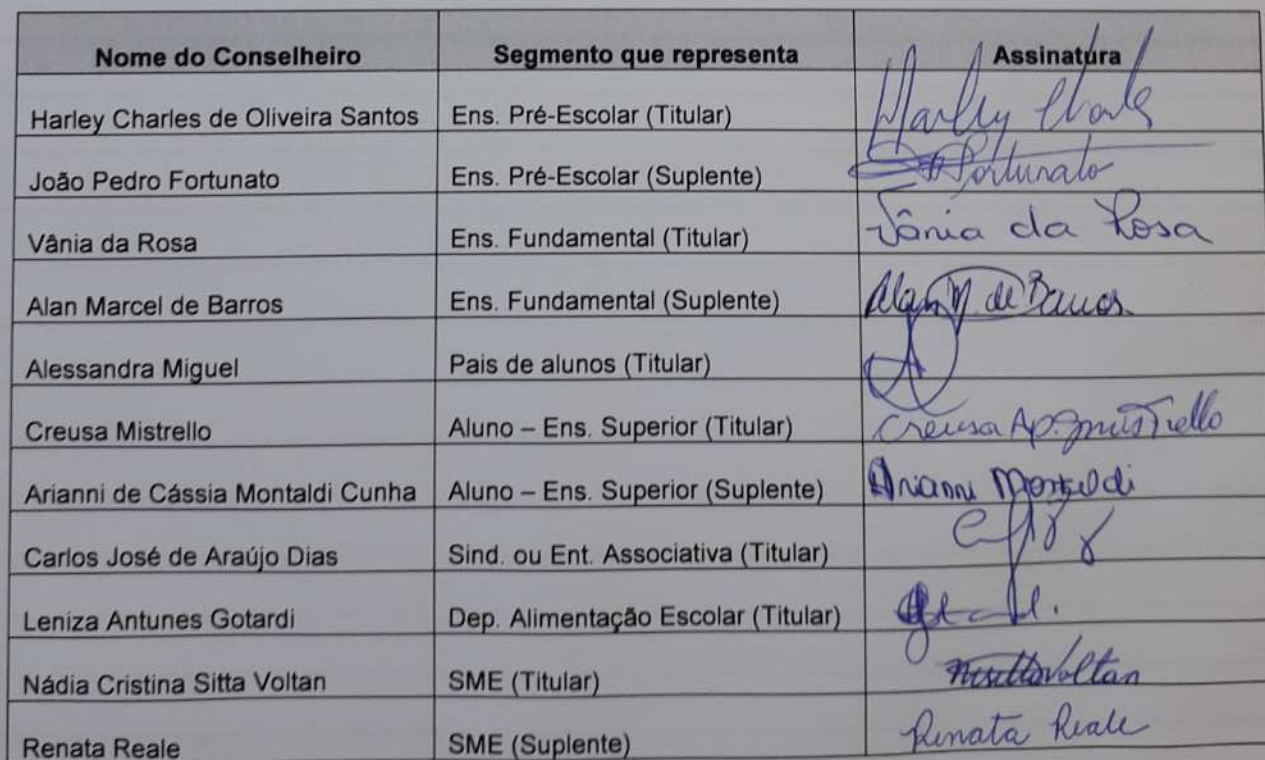 Nome do Conselheiro Segmento que representa Assinatura
Harley Charles de Oliveira Santos Ens. Pré-Escolar (Titular) Harley Charle
João Pedro Fortunato Ens. Pré-Escolar (Suplente) Fortunato
Vânia da Rosa Ens. Fundamental (Titular) Vânia da Rosa
Alan Marcel de Barros Ens. Fundamental (Suplente) Alan M. de Barros
Alessandra Miguel Pais de alunos (Titular)
Creusa Mistrello Aluno – Ens. Superior (Titular) Creusa Ap. Mistrello
Arianni de Cássia Montaldi Cunha Aluno – Ens. Superior (Suplente) Arianni Montaldi
Carlos José de Araújo Dias Sind. ou Ent. Associativa (Titular)
Leniza Antunes Gotardi Dep. Alimentação Escolar (Titular)
Nádia Cristina Sitta Voltan SME (Titular)
Renata Reale SME (Suplente) Renata Reale